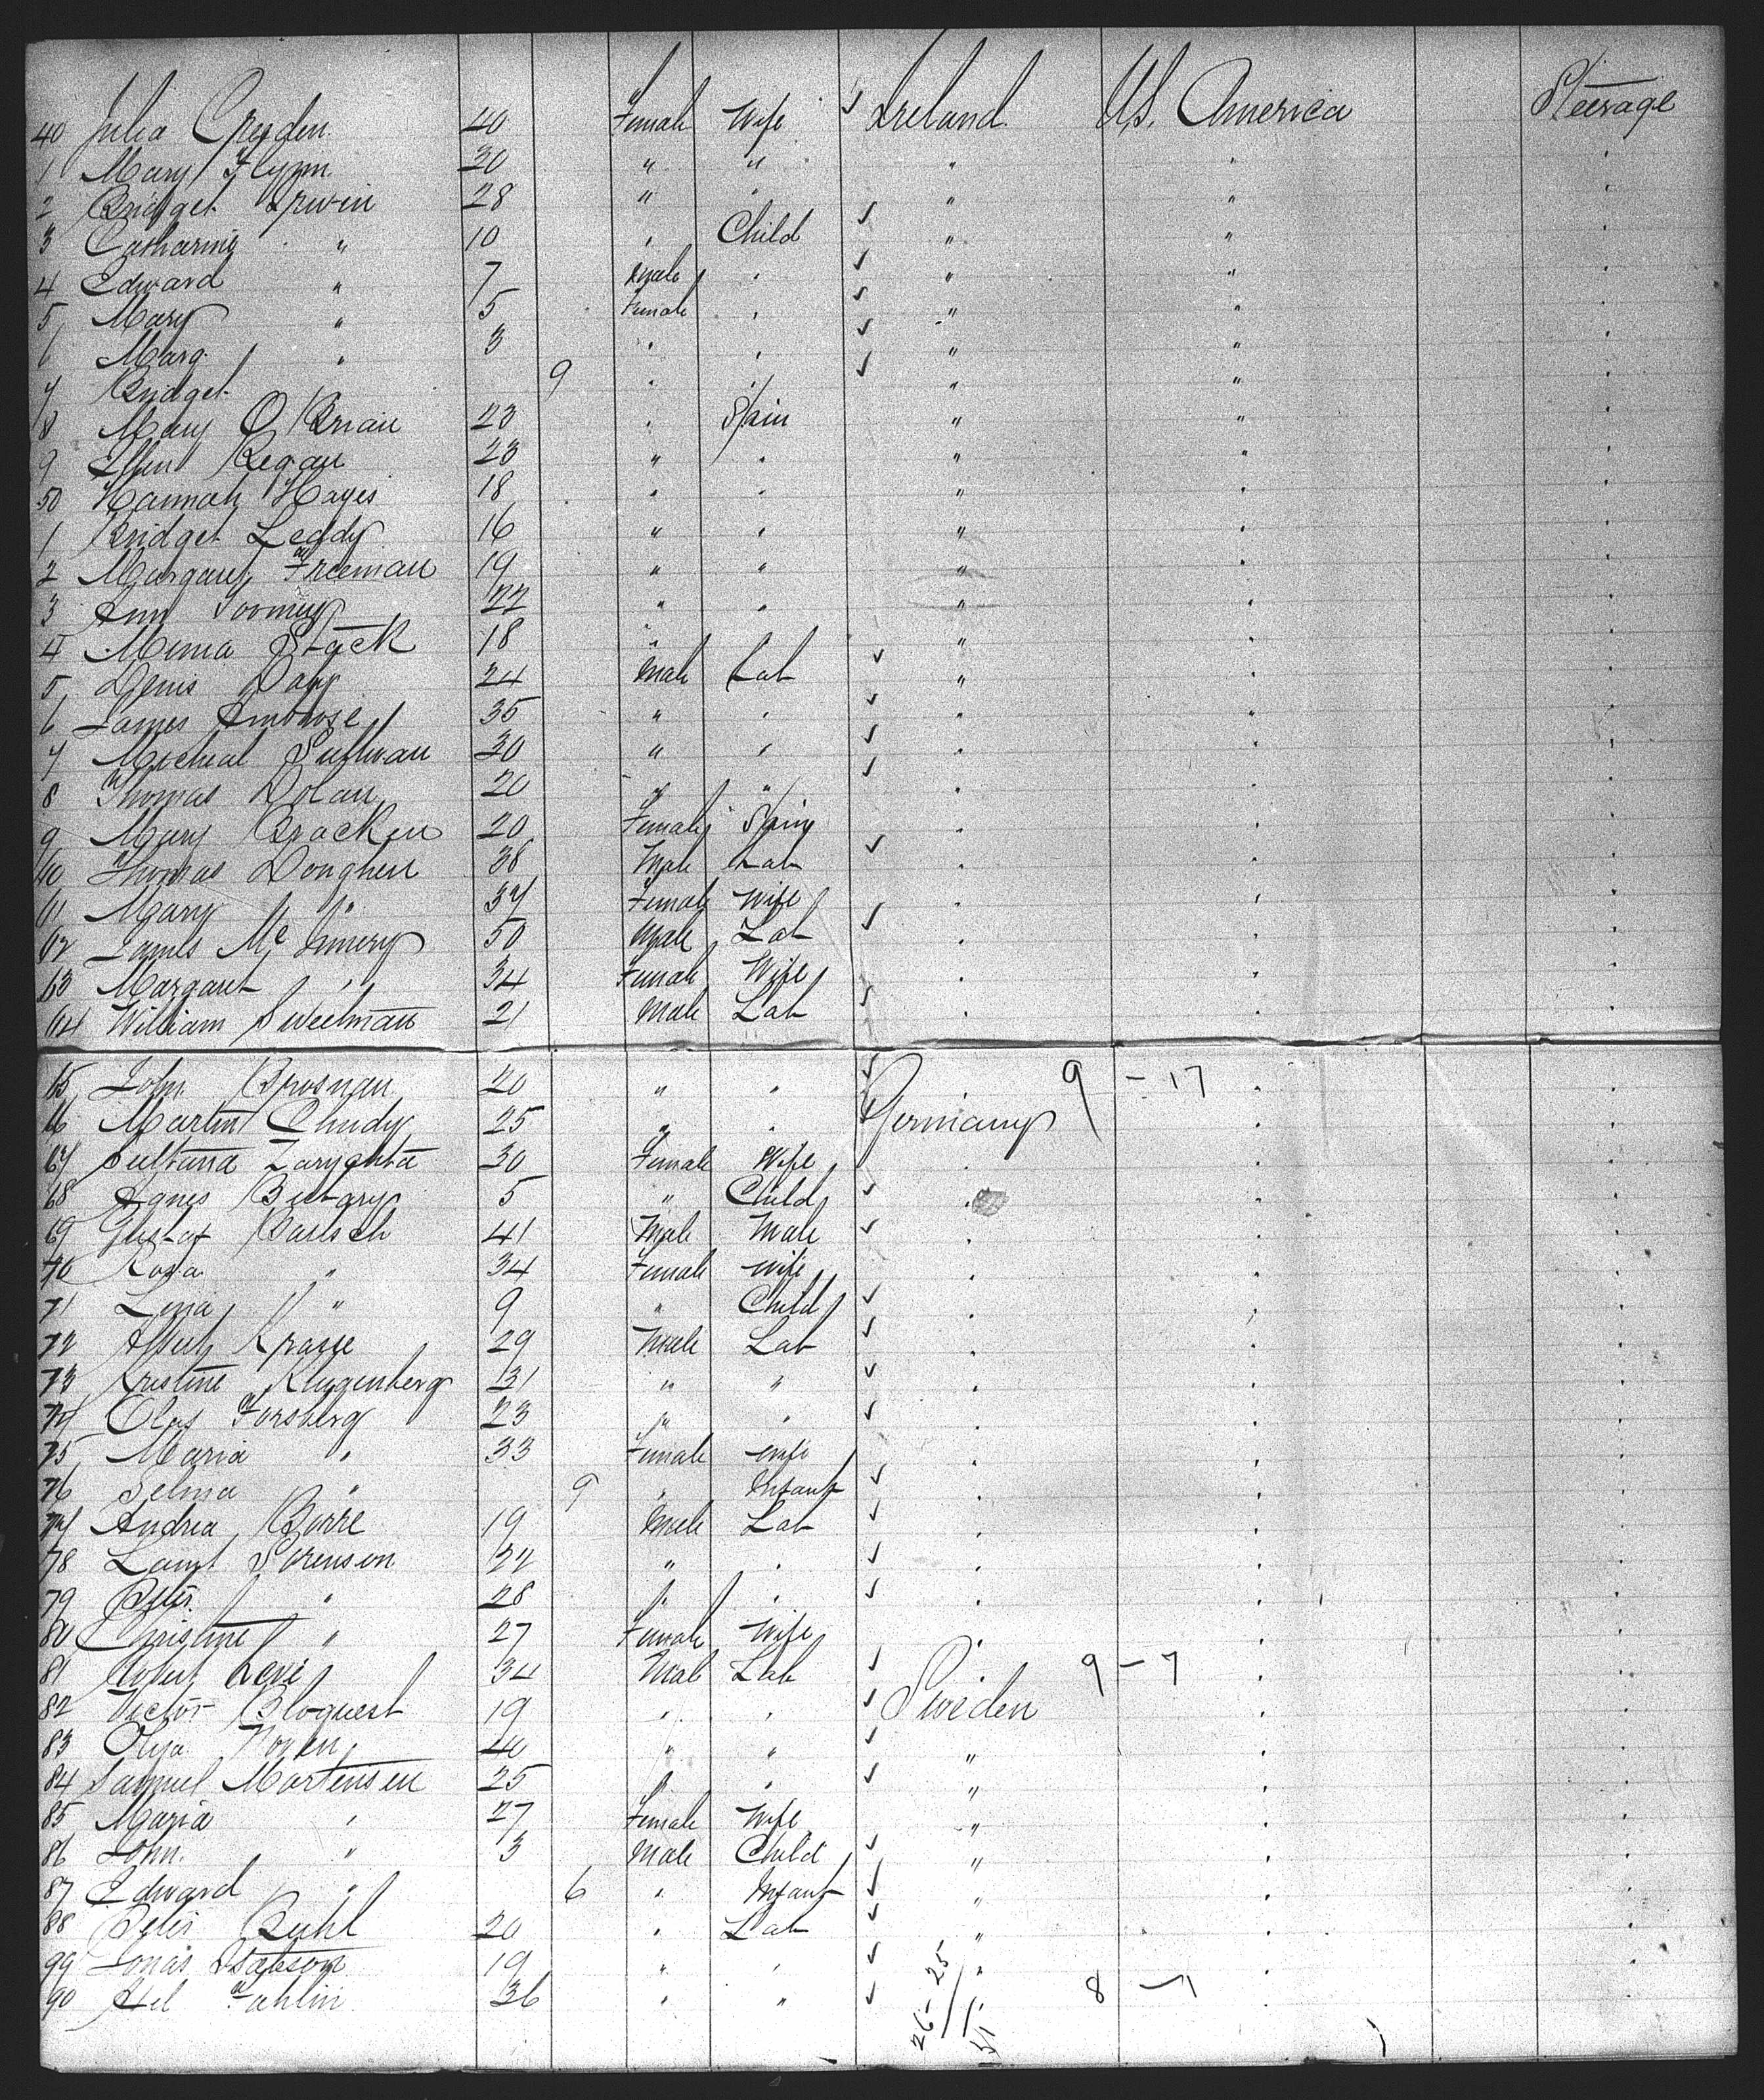 40 Julia Cryden 40 Female Wife Ireland U.S. America Steerage
1 Mary Flynn 30 " " " " "
2 Bridget Irwin 28 " " " " "
3 Catharine " 10 " Child " " "
4 Edward " 7 Male " " " "
5 Mary " 5 Female " " " "
6 Marg. " 3 " " " " "
7 Bridget 9 " " " " "
8 Mary O Brian 23 " Spin " " "
9 Ellen Regan 23 " " " " "
50 Hannah Hayes 18 " " " " "
1 Bridget Leddy 16 " " " " "
2 Margaret Freeman 19 " " " " "
3 Ann 22 " " " " "
4 Stack 18 " " " "
5 Denis Daly 24 Male Lab " " "
6 James Ambrose 35 " " " " "
7 Micheal Sullivan 30 " " " " "
8 Thomas Dolan 20 " " " " "
9 Mary Bracken 20 Female Spin " " "
60 Thomas Donghen 38 Male Lab " " "
61 Mary " 37 Female Wife " " "
62 James Mc Innery 50 Male Lab " " "
63 Margaret " 34 Female Wife " " "
64 William Sweetman 21 Male Lab " " "
65 John Brosnan 20 " " 9 - 17 " "
66 Martin Chudy 25 " " Germany " "
67 Zarychta 30 Female Wife " " "
68 Agnes 5 " Child " " "
69 Gustaf Bartsch 41 Male Male " " "
70 Rosa " 34 Female Wife " " "
71 Lena " 9 " Child " " "
72 Albert Krause 29 Male Lab " " "
73 Kristine Klugenberg 31 " " " " "
74 Olas Forsberg 23 " " " " "
75 Maria " 33 Female Wife " " "
76 Selma " 9 " Infant " " "
77 Andrea 19 Male Lab " " "
78 Sorenson 22 " " " " "
79 Peter " 28 " " " " "
80 Christine " 27 Female Wife " " "
81 Robert Levi 34 Male Lab 9 - 7 "
82 Victor Bloquest 19 " " Sweden " "
83 Olya 40 " " " " "
84 Samuel Mortensen 25 " " " " "
85 Maria " 27 Female Wife " " "
86 John " 3 Male Child " " "
87 Edward " 6 " Infant " " "
88 Peter Buhl 20 " Lab " " "
99 Jonas 19 " " " " "
90 Axel Fahlin 36 " " " 8 - 1 " "
26-25
51